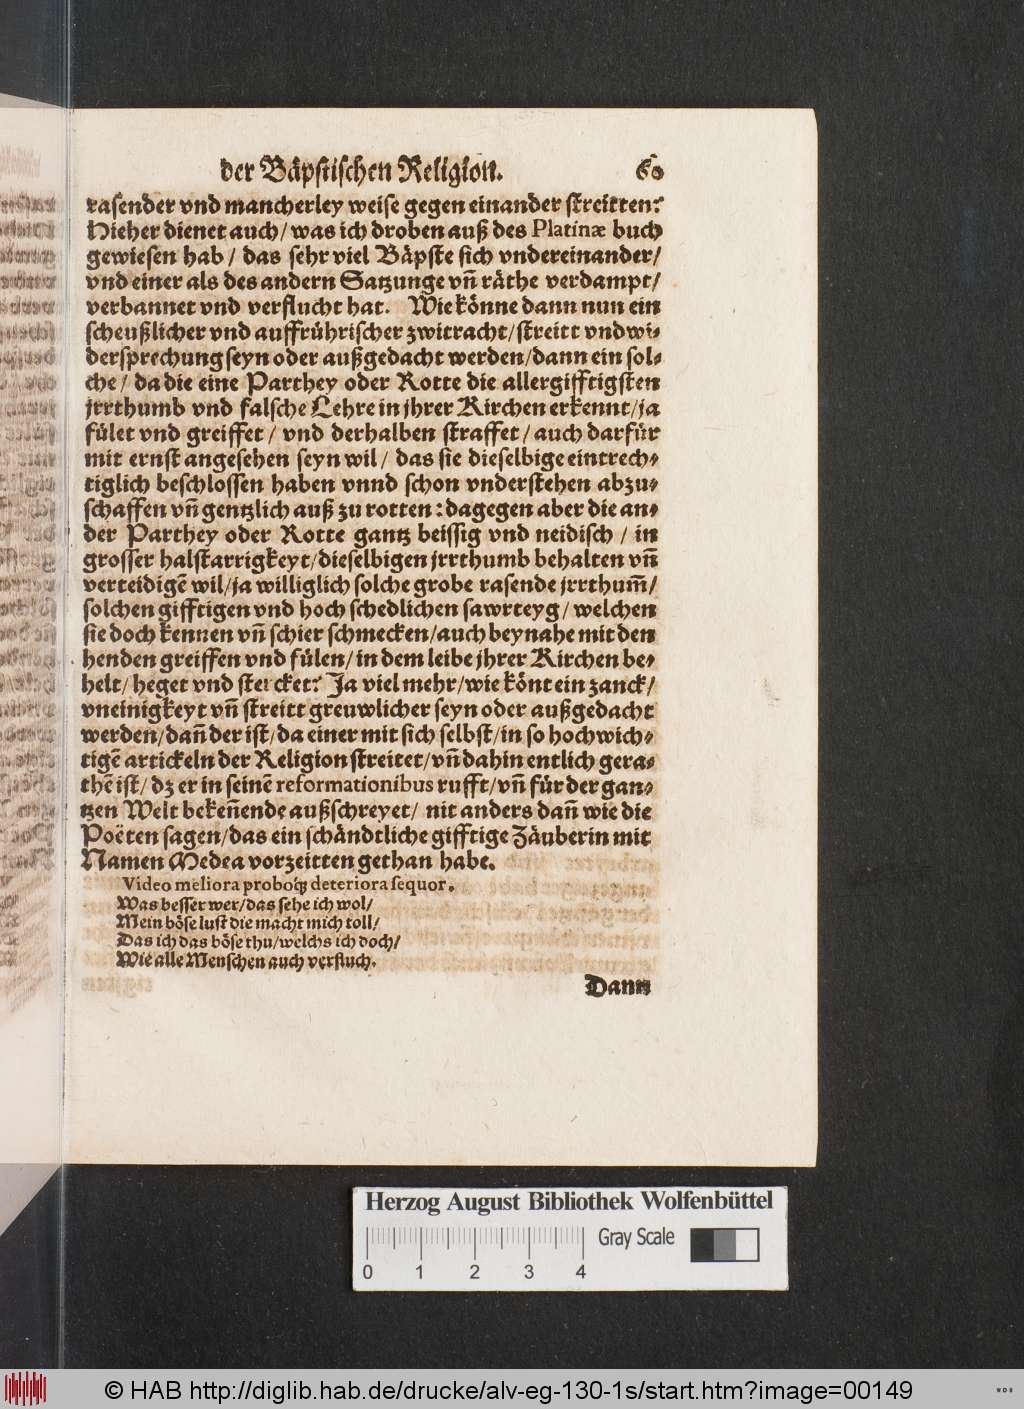 der Bäpstischen Religion. 60
rasender vnd mancherley weise gegen einander streitten?
Hieher dienet auch/ was ich droben auß des Platinæ buch
gewiesen hab/ das sehr viel Bäpste sich vndereinander/
vnd einer als des andern Satzunge vñ räthe verdampt/
verbannet vnd verflucht hat. Wie könne dann nun ein
scheußlicher vnd auffrührischer zwitracht/ streitt vnd wi-
dersprechung seyn oder außgedacht werden/ dann ein sol-
che/ da die eine Parthey oder Rotte die allergifftigsten
jrrthumb vnd falsche Lehre in jhrer Kirchen erkennt/ ja
fület vnd greiffet/ vnd derhalben straffet/ auch darfür
mit ernst angesehen seyn wil/ das sie dieselbige eintrech-
tiglich beschlossen haben vnnd schon vnderstehen abzu-
schaffen vñ gentzlich auß zu rotten: dagegen aber die an-
der Parthey oder Rotte gantz beissig vnd neidisch/ in
grosser halstarrigkeyt/ dieselbigen jrrthumb behalten vñ
verteidigẽ wil/ ja williglich solche grobe rasende jrrthum̃/
solchen gifftigen vnd hoch schedlichen sawrteyg/ welchen
sie doch kennen vñ schier schmecken/ auch beynahe mit den
henden greiffen vnd fülen/ in dem leibe jhrer Kirchen be-
helt/ heget vnd stercket? Ja viel mehr/ wie könt ein zanck/
vneinigkeyt vñ streitt greuwlicher seyn oder außgedacht
werden/ dañ der ist/ da einer mit sich selbst/ in so hochwich-
tigẽ artickeln der Religion streitet/ vñ dahin entlich gera-
thẽ ist/ dz er in seinẽ reformationibus rufft/ vñ für der gan-
tzen Welt bekeñende außschreyet/ nit anders dañ wie die
Poëten sagen/ das ein schändtliche gifftige Zäuberin mit
Namen Medea vorzeitten gethan habe.
Video meliora proboq́; deteriora sequor.
Was besser wer/ das sehe ich wol/
Mein böse lust die macht mich toll/
Das ich das böse thu/ welchs ich doch/
Wie alle Menschen auch verfluch.
Dann
Herzog August Bibliothek Wolfenbüttel
0 1 2 3 4 Gray Scale
© HAB http://diglib.hab.de/drucke/alv-eg-130-1s/start.htm?image=00149